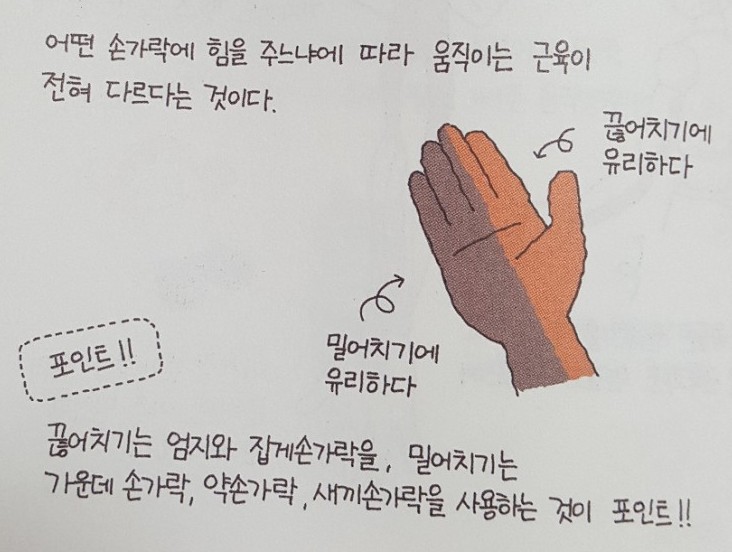 어떤 손가락에 힘을 주느냐에 따라 움직이는 근육이
전혀 다르다는 것이다.
끊어치기에
유리하다
밀어치기에
유리하다
포인트!!
끊어치기는 엄지와 집게손가락을, 밀어치기는
가운데 손가락, 약손가락, 새끼손가락을 사용하는 것이 포인트!!